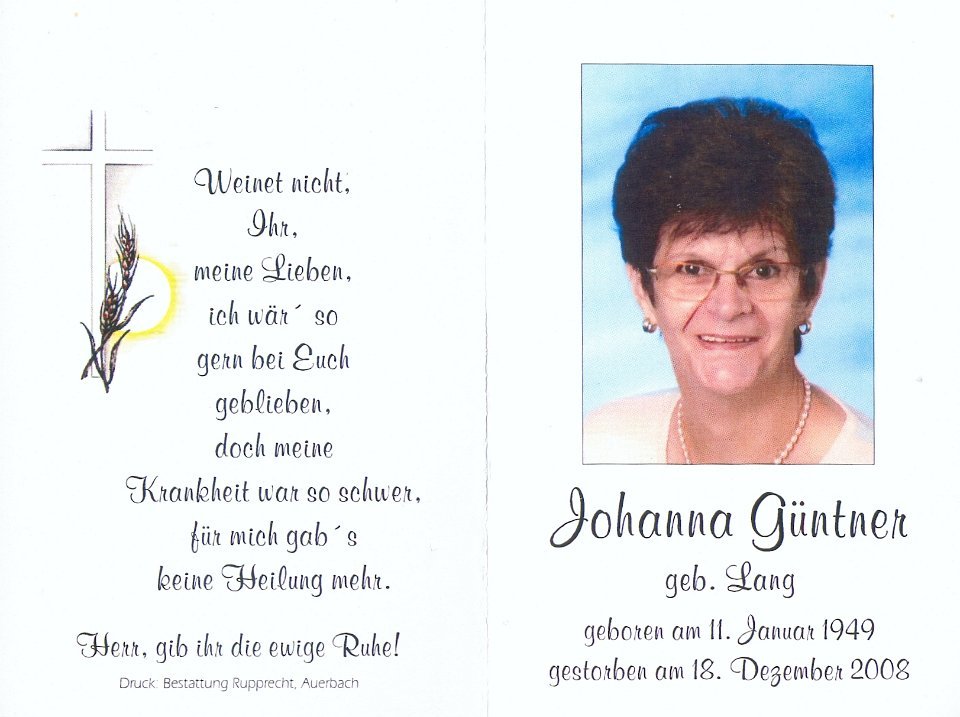 Weinet nicht,
Ihr,
meine Lieben,
ich wär´ so
gern bei Euch
geblieben,
doch meine
Krankheit war so schwer,
für mich gab´s
keine Heilung mehr.
Herr, gib ihr die ewige Ruhe!
Druck: Bestattung Rupprecht, Auerbach
Johanna Güntner
geb. Lang
geboren am 11. Januar 1949
gestorben am 18. Dezember 2008